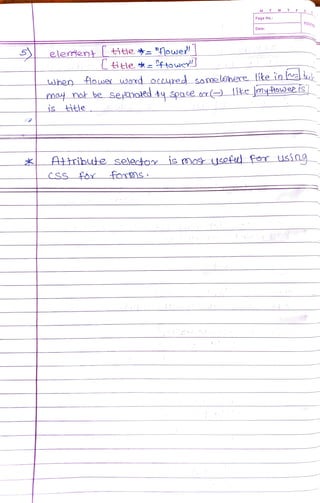 M T W T F S S
Page No.:
Date:
5) element [ title *= "flower" ]
[ title *= "flower" ]
when flower word occured somewhere like in but
may not be seperated by space or (-) like myflower is
is title
* Attribute selector is most useful for using
CSS for forms.